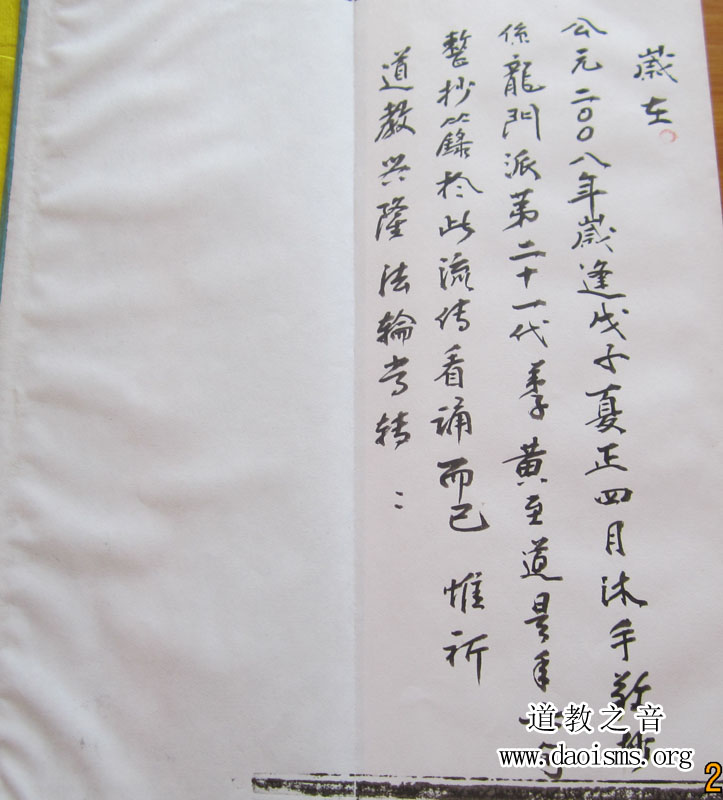 歲在
公元二〇〇八年歲逢戊子夏正四月沐手敬抄
係龍門派第二十一代弟子黄至道是年
整抄錄於此流传看誦而已 惟祈
道教兴隆法輪常轉
道教之音
www.daoisms.org
2